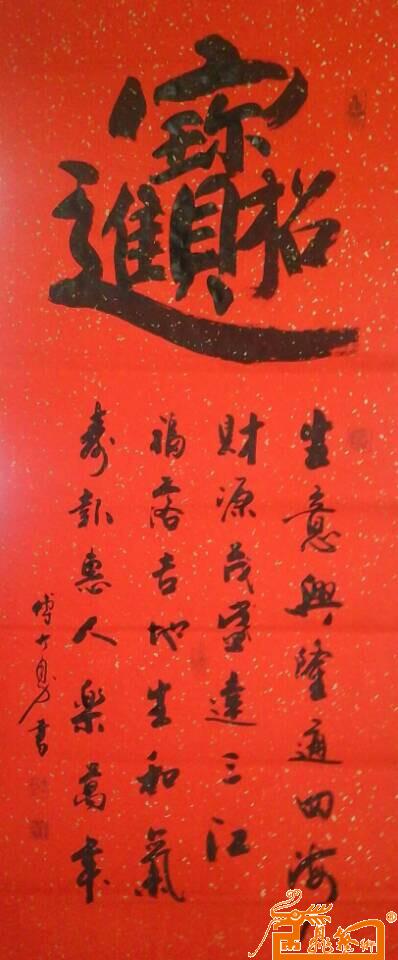 招財進寶
生意興隆通四海
財源茂盛達三江
福落吉地生和氣
壽惠人樂萬年
書